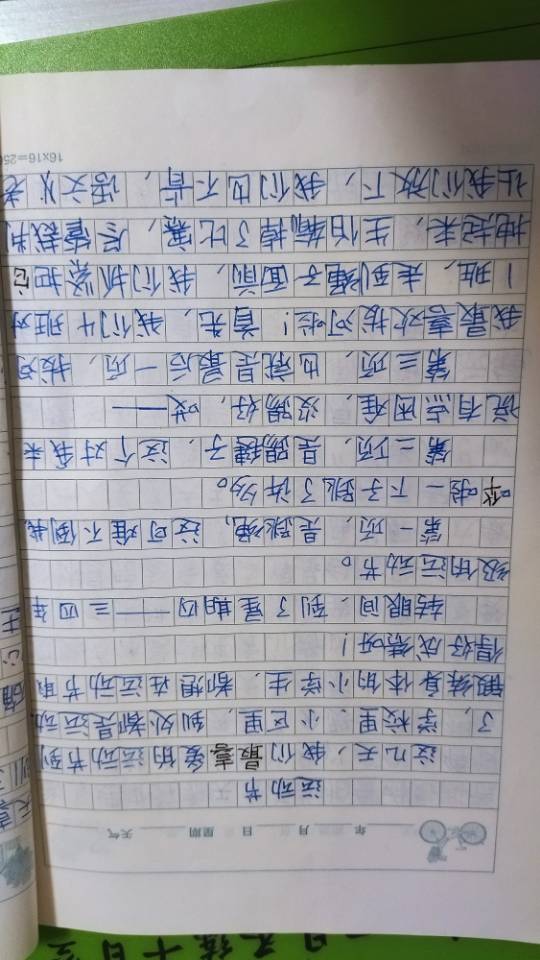 年 月 日 星期 天气
运动节
这几天,我们最喜爱的运动节到
了,学校里、小区里,到处都是运动、
锻炼身体的小学生,都想在运动节取
得好成绩呀!
转眼间,到了星期四——三四年
级的运动节。
第一项,是跳绳,这可难不倒我,
哗啦一下子跳了许多。
第二项,是踢毽子,这个对我来
说有点困难,没踢好,哎——
第三项,也就是最后一项,拔河
我最喜欢拔河啦!首先,我们4班对
1班,走到绳子面前,我们抓紧把它
抱起来,生怕输掉了比赛,尽管裁判
让我们放下,我们也不肯,语文 老
16x16=256